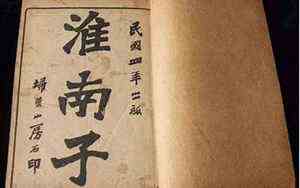 民國四年二版
淮南子
掃葉山房石印